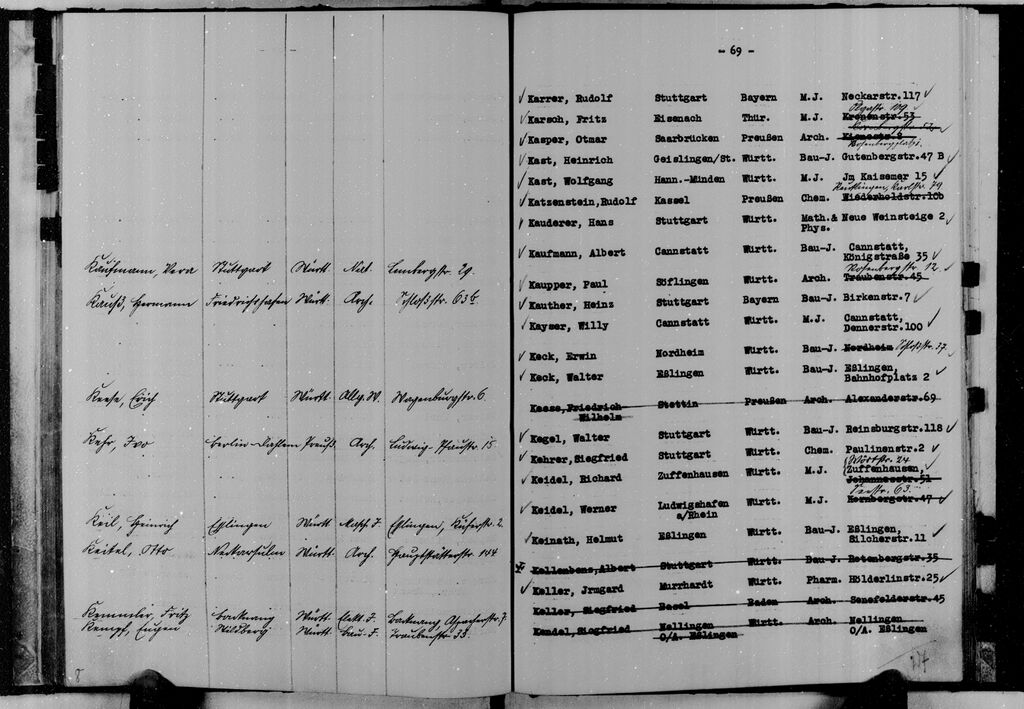 Kaufmann, Vera Stuttgart Württ. Nat. Lembergstr. 29.
Kauß, Hermann Friedrichshafen Württ. Arch. Schloßstr. 63 b
Keese, Erich Stuttgart Württ. Allg. W. Wagenburgstr. 6.
Kehr, Ivo Berlin-Dahlem Preuß. Arch. Ludwig-Pfaustr. 15
Keil, Heinrich Eßlingen Württ. Masch. I. Eßlingen, Küferstr. 2.
Keitel, Otto Neckarsulm Württ. Arch. Hauptstätterstr. 144
Kemmler, Fritz Backnang Württ. Elekt. I. Backnang, 7.
Kempf, Eugen Wildberg Württ. Bau-I. Traubenstr. 33.
8
- 69 -
Karrer, Rudolf Stuttgart Bayern M.J. Neckarstr.117
109
Karsch, Fritz Eisenach Thür. M.J. Kronenstr.53
Kasper, Otmar Saarbrücken Preußen Arch. Kienestr.8
Rosenbergplatz
Kast, Heinrich Geislingen/St. Württ. Bau-J. Gutenbergstr.47 B
Kast, Wolfgang Hann.-Münden Württ. M.J. Jm Kaisemer 15
Reutlingen, Karlstr. 79
Katzenstein,Rudolf Kassel Preußen Chem. Wiederholdstr.10b
Kauderer, Hans Stuttgart Württ. Math.& Neue Weinsteige 2
Phys.
Kaufmann, Albert Cannstatt Württ. Bau-J. Cannstatt,
Königstraße 35
Rosenbergstr. 12.
Kaupper, Paul Söflingen Württ. Arch. Traubenstr.45
Kauther, Heinz Stuttgart Bayern Bau-J. Birkenstr.7
Kayser, Willy Cannstatt Württ. M.J. Cannstatt,
Dennerstr.100
Keck, Erwin Nordheim Württ. Bau-J. Nordheim Schloßstr. 37.
Keck, Walter Eßlingen Württ. Bau-J. Eßlingen,
Bahnhofplatz 2
Keese,Friedrich Stettin Preußen Arch. Alexanderstr.69
Wilhelm
Kegel, Walter Stuttgart Württ. Bau-J. Reinsburgstr.118
Kehrer,Siegfried Stuttgart Württ. Chem. Paulinenstr.2
Wörthstr. 24
Keidel, Richard Zuffenhausen Württ. M.J. Zuffenhausen,
Johannesstr.51
63
Keidel, Werner Ludwigshafen Württ. M.J. Hornbergstr.47
a/Rhein
Keinath, Helmut Eßlingen Württ. Bau-J. Eßlingen,
Silcherstr.11
Kellenbens,Albert Stuttgart Württ. Bau-J. Rotenbergstr.35
Keller, Jrmgard Murrhardt Württ. Pharm. Hölderlinstr.25
Keller, Siegfried Basel Baden Arch. Senefelderstr.45
Kendel,Siegfried Nellingen Württ. Arch. Nellingen
O/A. Eßlingen O/A. Eßlingen